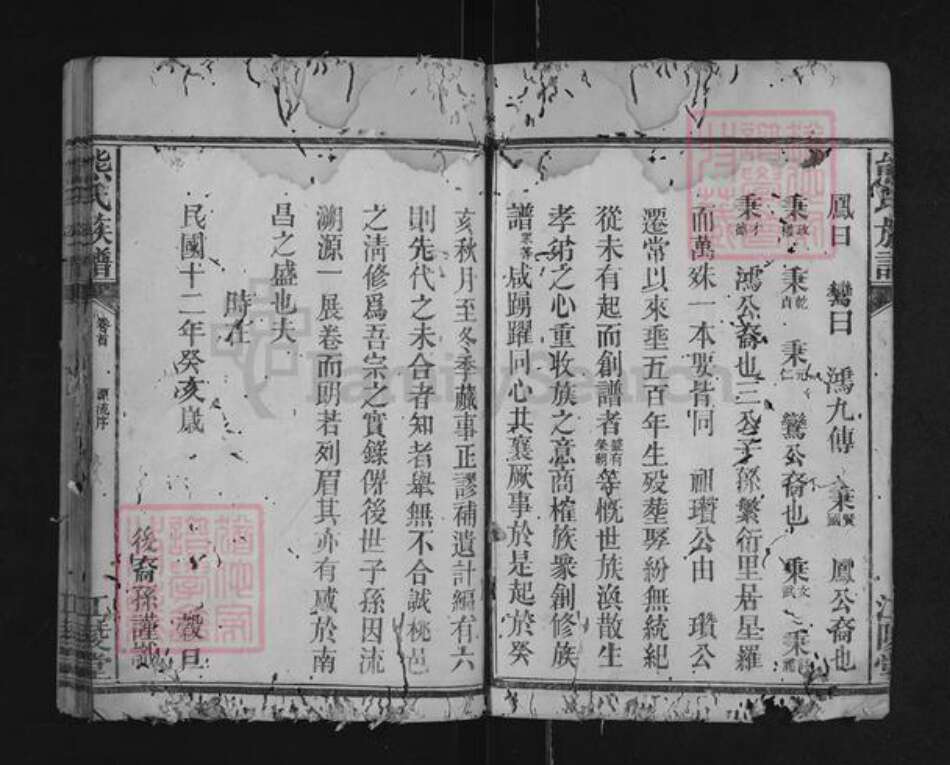 鳳曰 鸞曰 鴻九傳 秉賢國 鳳公裔也
秉政 秉乾貞 秉元仁 鸞公裔也 秉文武 秉
秉才 鴻公裔也三公子孫繁衍里居星羅
而萬姝一本要皆同 祖瓚公由 瓚公
遷常以來垂五百年生歿塟娶紛無統紀
從未有起而創譜者等慨世族渙散生
孝弟之心重收族之意商榷族衆創修族
譜等咸踴躍同心共襄厥事於是起於癸
亥秋月至冬季蕆事正謬補遺計編有六
則先代之未合者知者舉無不合誠桃邑
之清修爲吾宗之實錄俾後世子孫因流
溯源一展卷而朗若列眉其亦有感於南
昌之盛也夫
時在
民國十二年癸亥歲 穀旦
後裔孫謹識
熊氏族譜 卷首 源流序 江陵堂